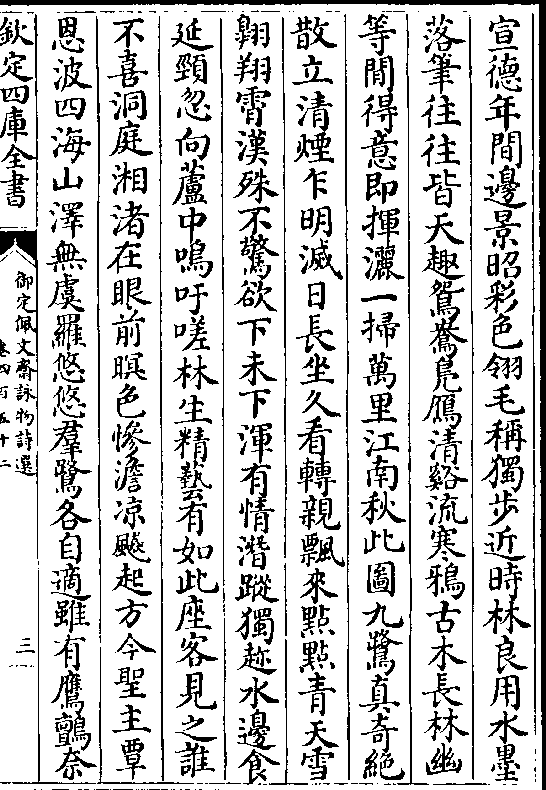 宣德年間邊景昭彩色翎毛稱獨步近時林良用水墨
落筆往往皆天趣鴛鴦鳧鴈清谿流寒鴉古木長林幽
等閒得意即揮灑一掃萬里江南秋此圖九鷺真奇絕
散立清煙乍明滅日長坐久看轉親飄來點點青天雪
翺翔霄漢殊不驚欲下未下渾有情潛蹤獨趂水邊食
延頸忽向蘆中鳴吁嗟林生精藝有如此座客見之誰
不喜洞庭湘渚在眼前暝色慘澹凉颷起方今聖主覃
恩波四海山澤無虞羅悠悠羣鷺各自適雖有鷹鸇奈
欽定四庫全書
御定佩文齋詠物詩選
卷四百五十二
三